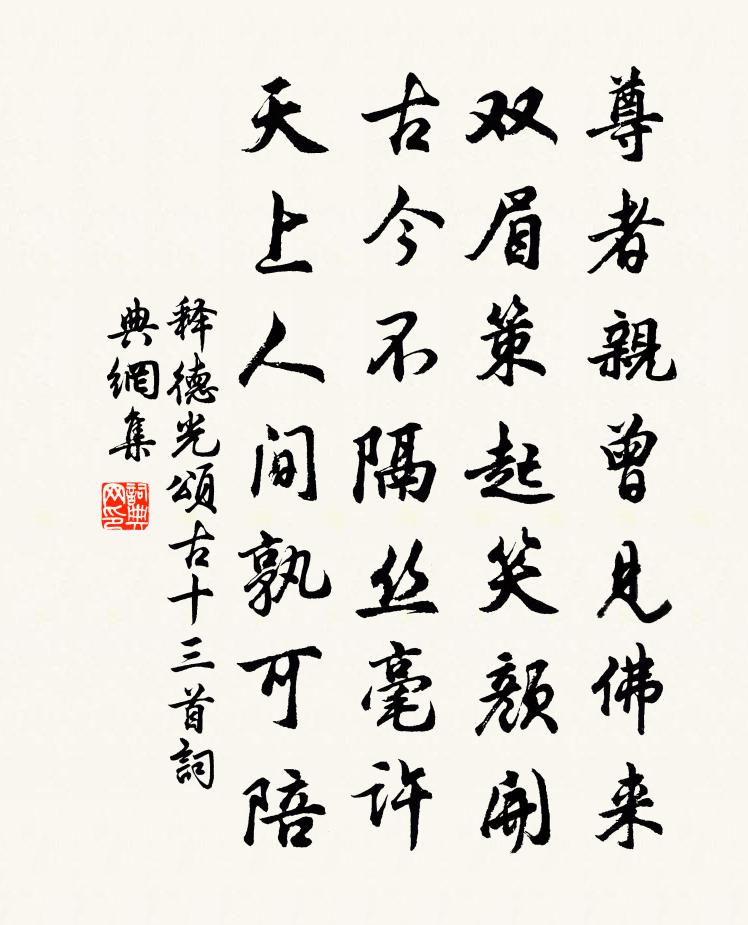 尊者親曾見佛来
双眉策起笑顔開
古今不隔丝毫許
天上人间孰可陪
释德光頌古十三首詞
典網集
詞典
网印